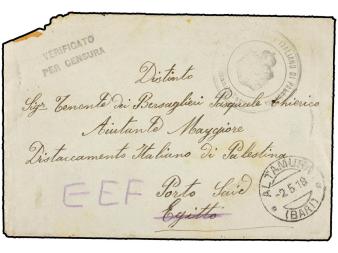 VERIFICATO
PER CENSURA
ITALIANO DI
Distinto
Sigr Tenente dei Bersaglieri Pasquale Chierico
Aiutante Maggiore
Distaccamento Italiano di Palestina
EEF
Porto Said
Egitto
ALTAMURA
2.5.18
(BARI)